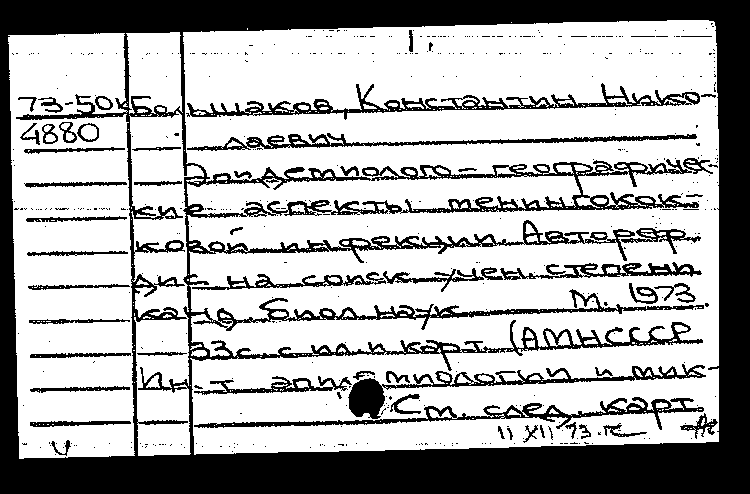 73-50к Большаков, Константин Нико-
4880 лаевич
Эпидемиолого-географичес-
кие аспекты менингокок-
ковой инфекции. Автореф.
дис на соиск учен. степени
канд. биол. наук М., 1973.
33с. с ил. и карт. (АМНСССР
Ин-т эпидемиологии и мик-
См. след. карт.
11 XII 73